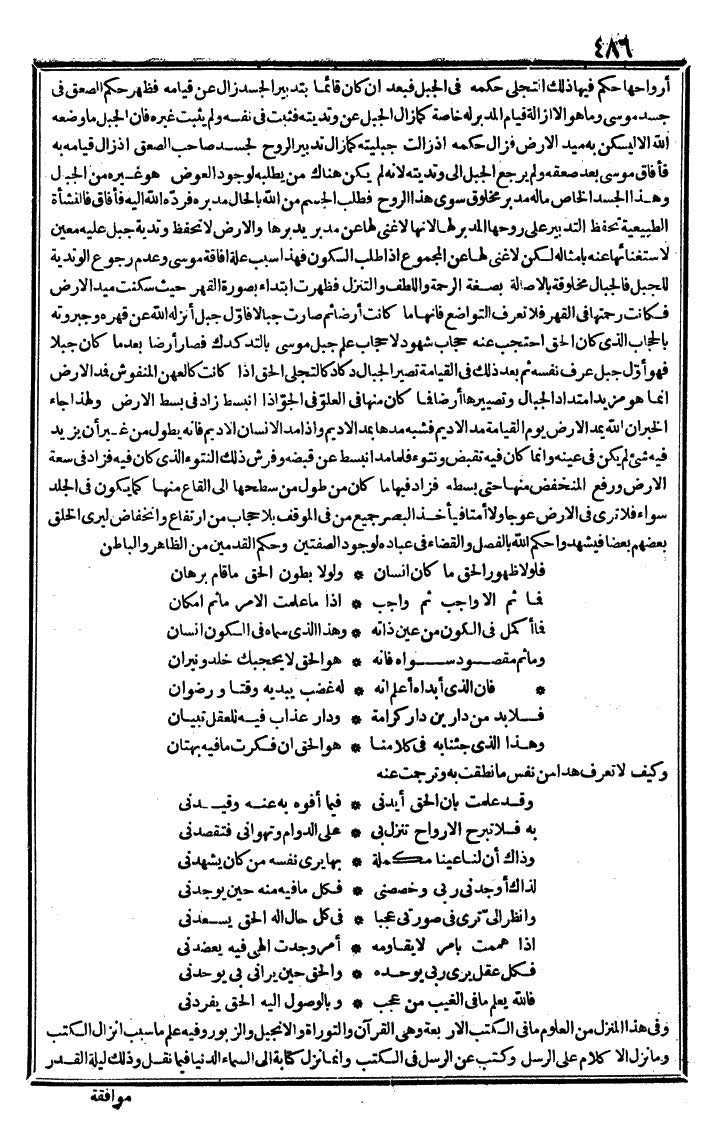 ٤٨٦
أرواحها حكم فيها ذلك التجلى حكمه فى الجبل فبعد ان كان قائما بتدبير الجسد زال عن قيامه فظهر حكم الصعق فى
جسد موسى وما هو الا ازالة قيام المدبر له خاصة كما زال الجبل عن وتديته فثبت فى نفسه ولم يثبت غيره فان الجبل ما وضعه
الله الا ليسكن به ميد الارض فزال حكمه اذ زالت جبليته كما زال تدبير الروح لجسد صاحب الصعق اذ زال قيامه به
فأفاق موسى بعد صعقه ولم يرجع الجبل الى وتديته لانه لم يكن هناك من يطلبه لوجود العوض هو غيره من الجبل
وهذا الجسد الخاص ماله مدبر مخلوق سوى هذا الروح فطلب الجسم من الله بالحال مدبره فردّه الله اليه فأفاق فالنشأة
الطبيعية تحفظ التدبير على روحها المدبر لها لانها لاغنى لها عن مدبر يدبرها والارض لا تحفظ وتدية جبل عليه معين
لاستغنائها عنه بامثاله لكن لاغنى لها عن المجموع اذا طلب السكون فهذا سبب علة افاقة موسى وعدم رجوع الوتدية
للجبل فالجبال مخلوقة بالاصالة بصفة الرحمة واللطف والتنزل فظهرت ابتداء بصورة القهر حيث سكنت ميد الارض
فكانت رحمتها فى القهر فلا تعرف التواضع فانها ما كانت أرضا ثم صارت جبالا فاوّل جبل أنزله الله عن قهره وجبروته
بالحجاب الذى كان الحق احتجب عنه حجاب شهود لا حجاب علم جبل موسى بالتدكدك فصار أرضا بعدما كان جبلا
فهو أوّل جبل عرف نفسه ثم بعد ذلك فى القيامة تصير الجبال دكا دكا لتجلى الحق اذا كانت كالعهن المنفوش فمد الارض
انما هو مزيد امتداد الجبال وتصييرها أرضا فما كان منها فى العلوّ فى الجوّ اذا انبسط زاد فى بسط الارض ولهذا جاء
الخبر ان الله يمد الارض يوم القيامة مد الاديم فشبه مدها بمد الاديم واذا مد الانسان الاديم فانه يطول من غير أن يزيد
فيه شئ لم يكن فى عينه وانما كان فيه تقبض ونتوء فلما مد انبسط عن قبضه وفرش ذلك النتوء الذى كان فيه فزاد فى سعة
الارض ورفع المنخفض منها حتى بسطه فزاد فيها ما كان من طول من سطحها الى القاع منها كما يكون فى الجلد
سواء فلا ترى فى الارض عوجا ولا أمتا فيأخذ البصر جميع من فى الموقف بلا حجاب من ارتفاع وانخفاض ليرى الخلق
بعضهم بعضا فيشهدوا حكم الله بالفصل والقضاء فى عباده لوجود الصفتين وحكم القدمين من الظاهر والباطن
فلولا ظهور الحق ما كان انسان * ولولا بطون الحق ماقام برهان
فما ثم الا واجب ثم واجب * اذا ما علمت الامر ماثم امكان
فما أكمل فى الكون من عين ذاته * وهذا الذى سماه فى السكون انسان
وماثم مقصود سواه فانه * هو الحق لا يحجبك خلد ونيران
* فان الذى أبداه أعلم انه * له غضب يبديه وقتا ورضوان
فلا بد من دارين دار كرامة * ودار عذاب فيه للعقل تبيان
وهذا الذى جئنا به فى كلامنا * هو الحق ان فكرت ما فيه بهتان
وكيف لا تعرف هدا من نفس ما نطقت به وترجمت عنه
وقد علمت بان الحق أيدنى * فيما أفوه به عنه وقيدنى
به فلا تبرح الارواح تنزل بى * على الدوام وتهوانى فتقصدنى
وذاك أن لنا عينا مكملة * بها يرى نفسه من كان يشهدنى
لذاك أوجدنى ربى وخصصنى * فكل مافيه منه حين يوجدنى
وانظر الىّ ترى فى صورتى عجبا * فى كل حال اله الحق يسعدنى
اذا هممت بامر لا يقاومه * أمر وجدت الهى فيه يعضدنى
فكل عقل يرى ربى يوحده * والحق حين يرانى بى يوحدنى
فالله يعلم مافى الغيب من عجب * وبالوصول اليه الحق يفردنى
وفى هذا المنزل من العلوم مافى الكتب الاربعة وهى القرآن والتوراة والانجيل والزبور وفيه علم ما سبب انزال الكتب
وما نزل الا كلام على الرسل وكتب عن الرسل فى الكتب وانما نزل كتابة الى السماء الدنيا فيما نقل وذلك ليلة القدر
موافقة